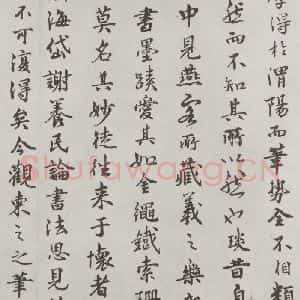 得於渭陽而筆勢全不相類
然而不知其所以然也琰昔自
中見燕客所藏羲之樂
書墨蹟愛其如金繩鐵索珊
莫名其妙徒往来于懷者
海岱謝養民論書法思見
不可復得矣今觀東之之筆
Shufawang.CN